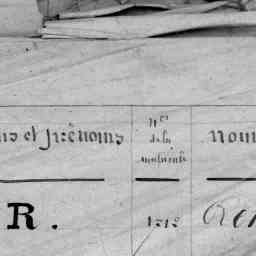 ms et prénoms
Nos
de la
matricule
nom
R.
1212